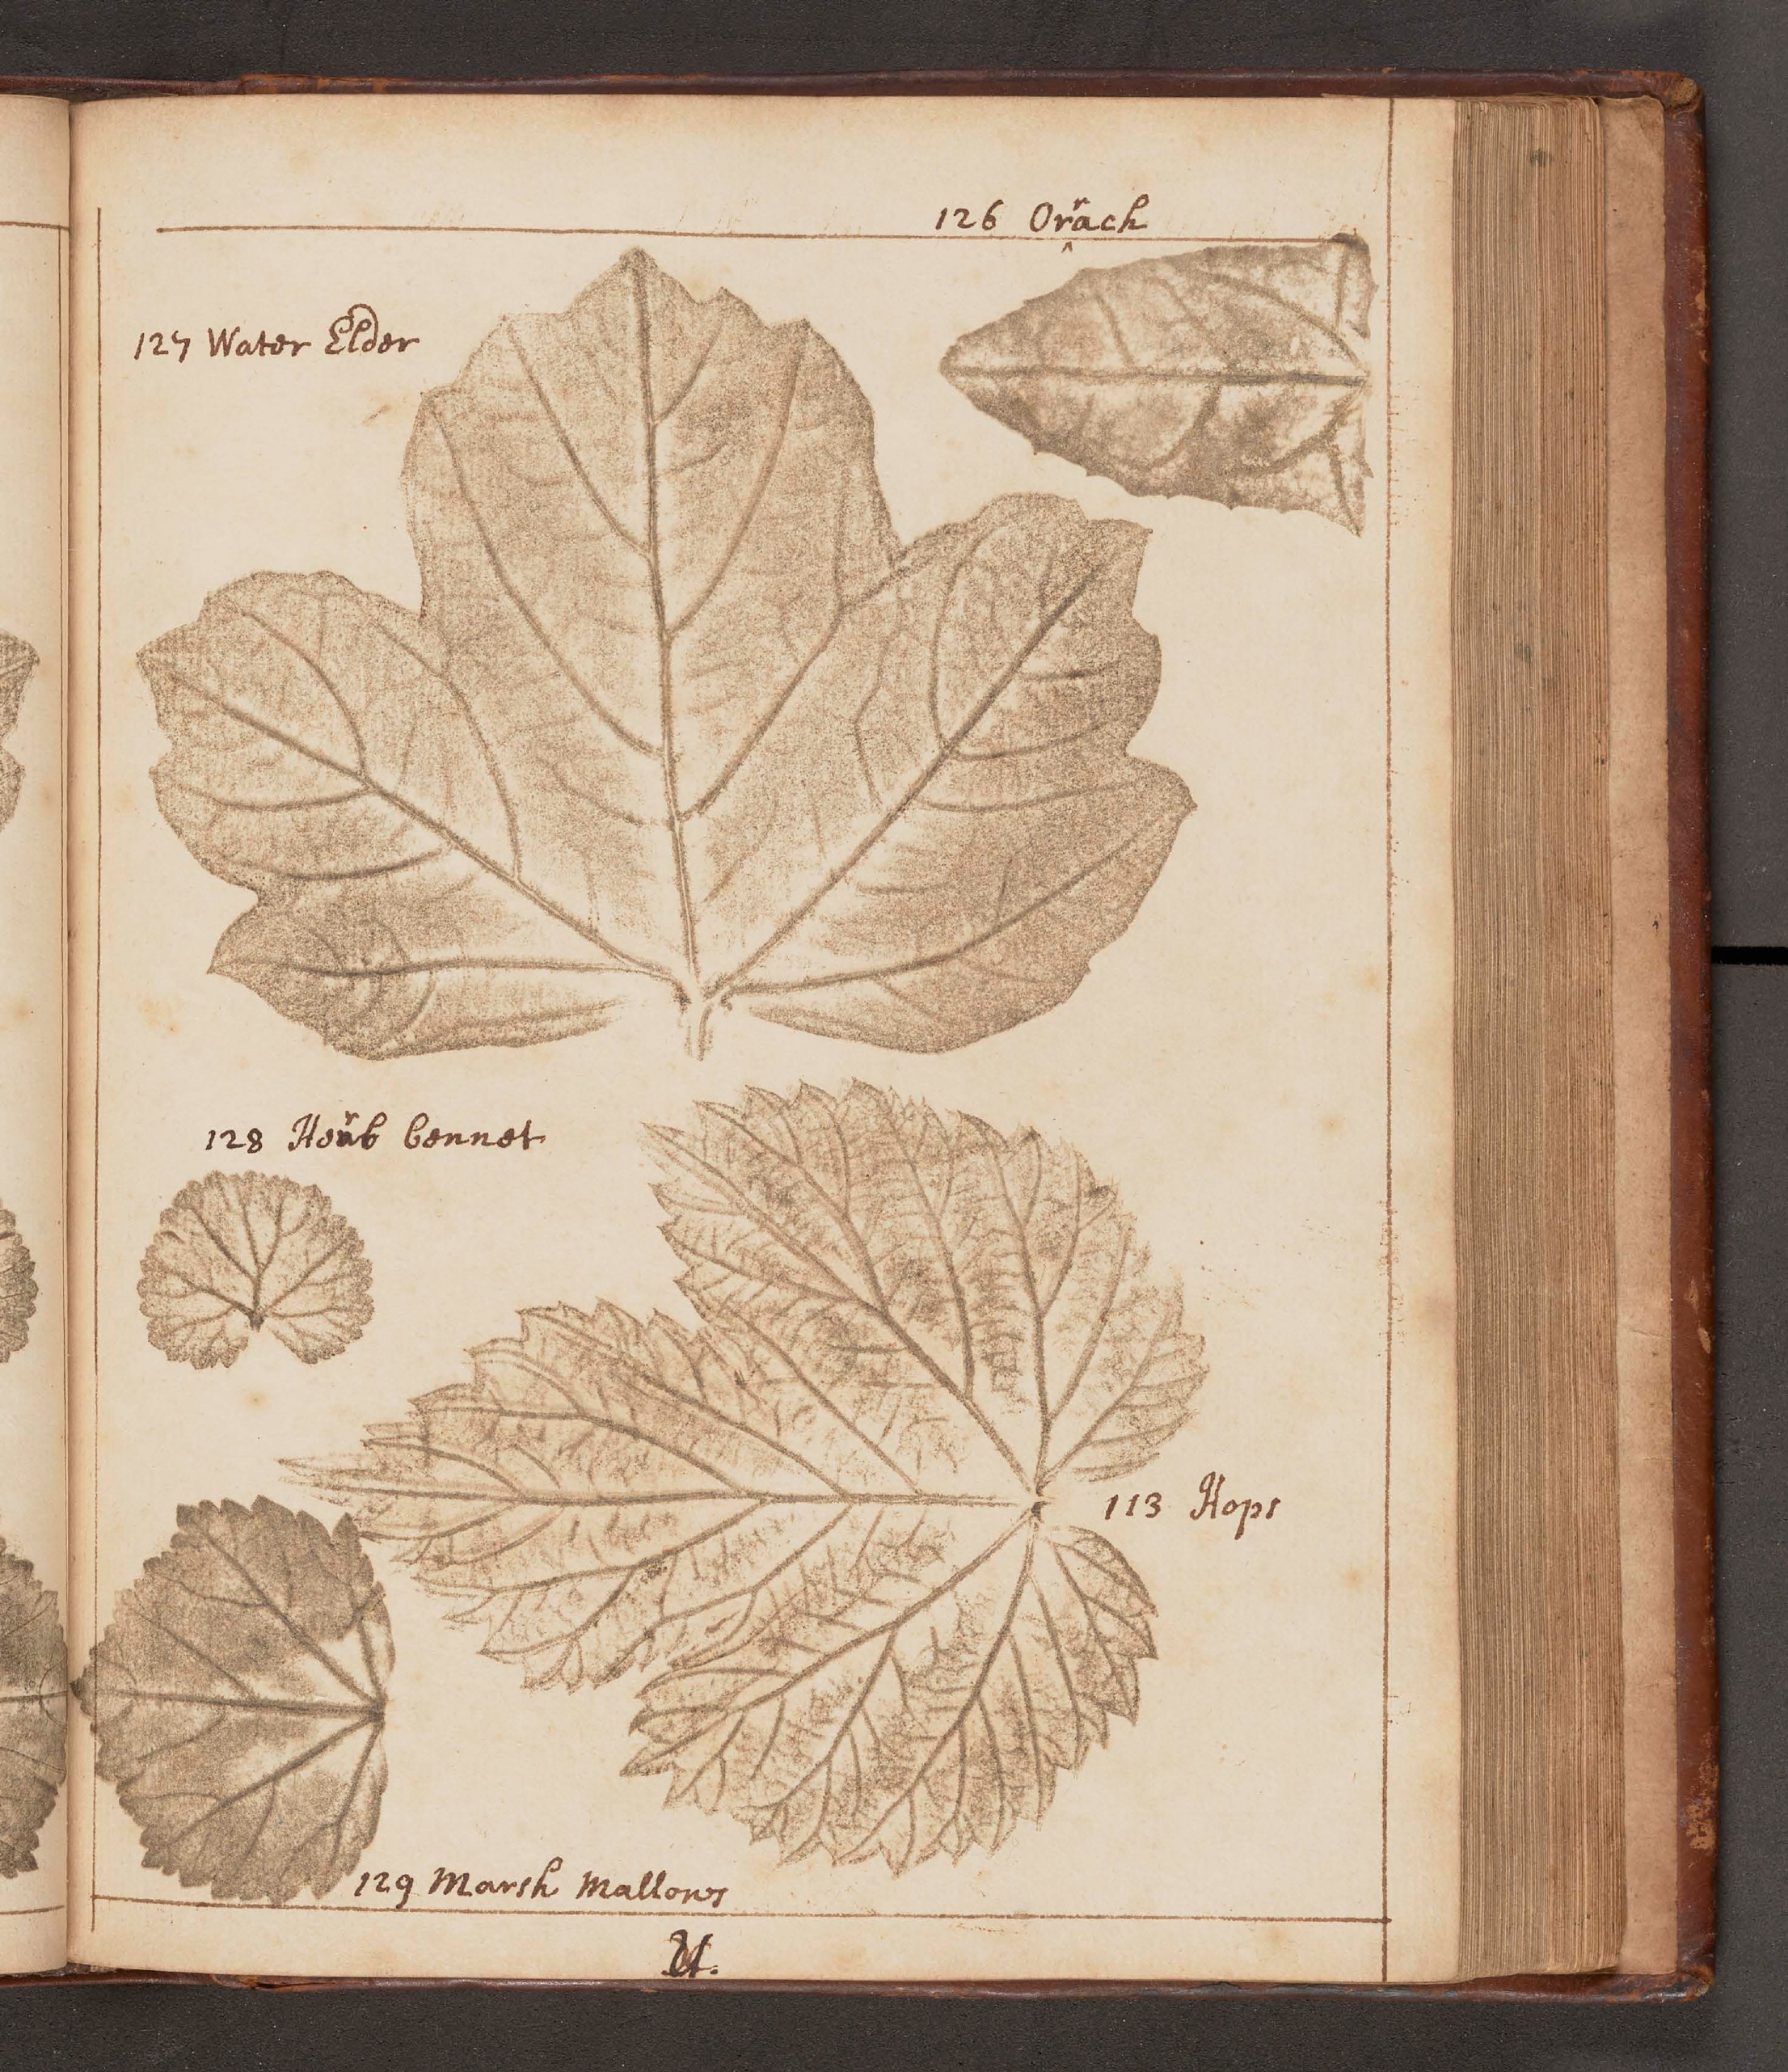 126 Orrach
127 Water Elder
128 Herb bennet
113 Hops
129 Marsh Mallows